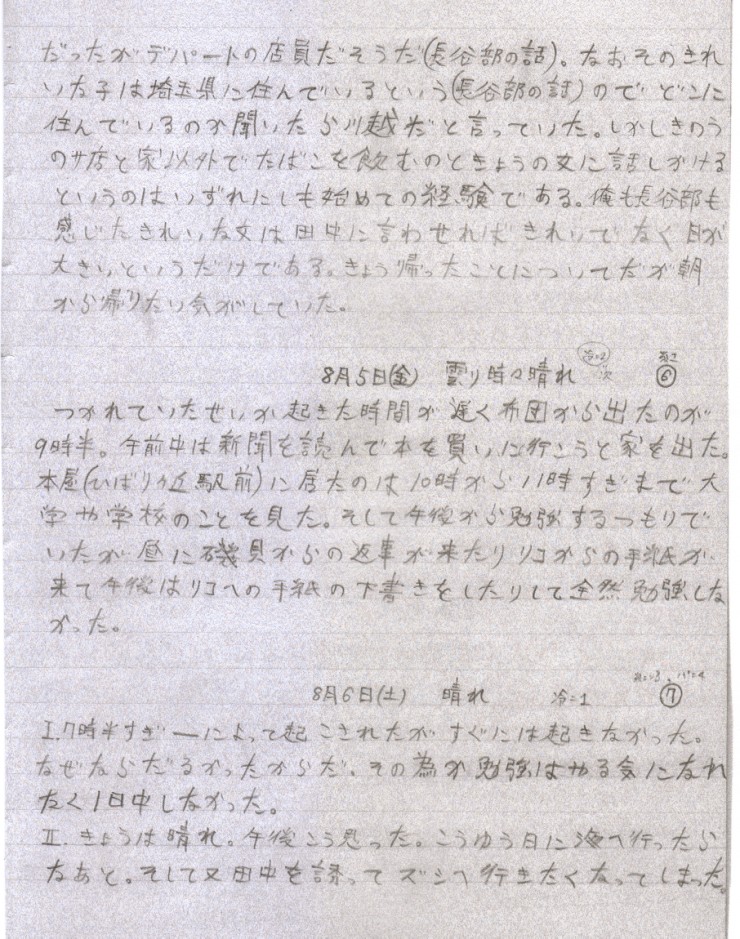 だったがデパートの店員だそうだ(長谷部の話)。なおそのきれ
いな子は埼玉県に住んでいるという(長谷部の話)のでどこに
住んでいるのか聞いたら川越だと言っていた。しかしきのう
のサ店と家以外でたばこを飲むのときょうの女に話しかける
というのはいずれにしも始めての経験である。俺も長谷部も
感じたきれいな女は田中に言わせればきれいでなく目が
大きいというだけである。きょう帰ったことについてだが朝
から帰りたい気がしていた。
8月5日(金) 雲り時々晴れ ⑥
つかれていたせいか起きた時間が遅く布団から出たのが
9時半。午前中は新聞を読んで本を買いに行こうと家を出た。
本屋(ひばりヶ丘駅前)に居たのは10時から11時すぎまで大
学や学校のことを見た。そして午後から勉強するつもりで
いたが昼に磯貝からの返事が来たりリコからの手紙が
来て午後はリコへの手紙の下書きをしたりして全然勉強しな
かった。
8月6日(土) 晴れ 冷=1 ⑦
I.7時半すぎ一によって起こされたがすぐには起きなかった。
なぜならだるかったからだ、その為か勉強はやる気になれ
なく1日中しなかった。
II.きょうは晴れ。午後こう思った。こうゆう日に海へ行ったら
なあと。そして又田中を誘ってズシへ行きたくなってしまった。